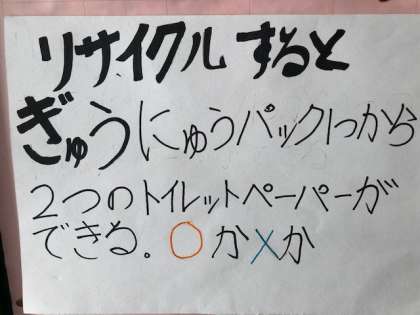 リサイクルすると
ぎゅうにゅうパック1つから
2つのトイレットペーパーが
できる。○か×か